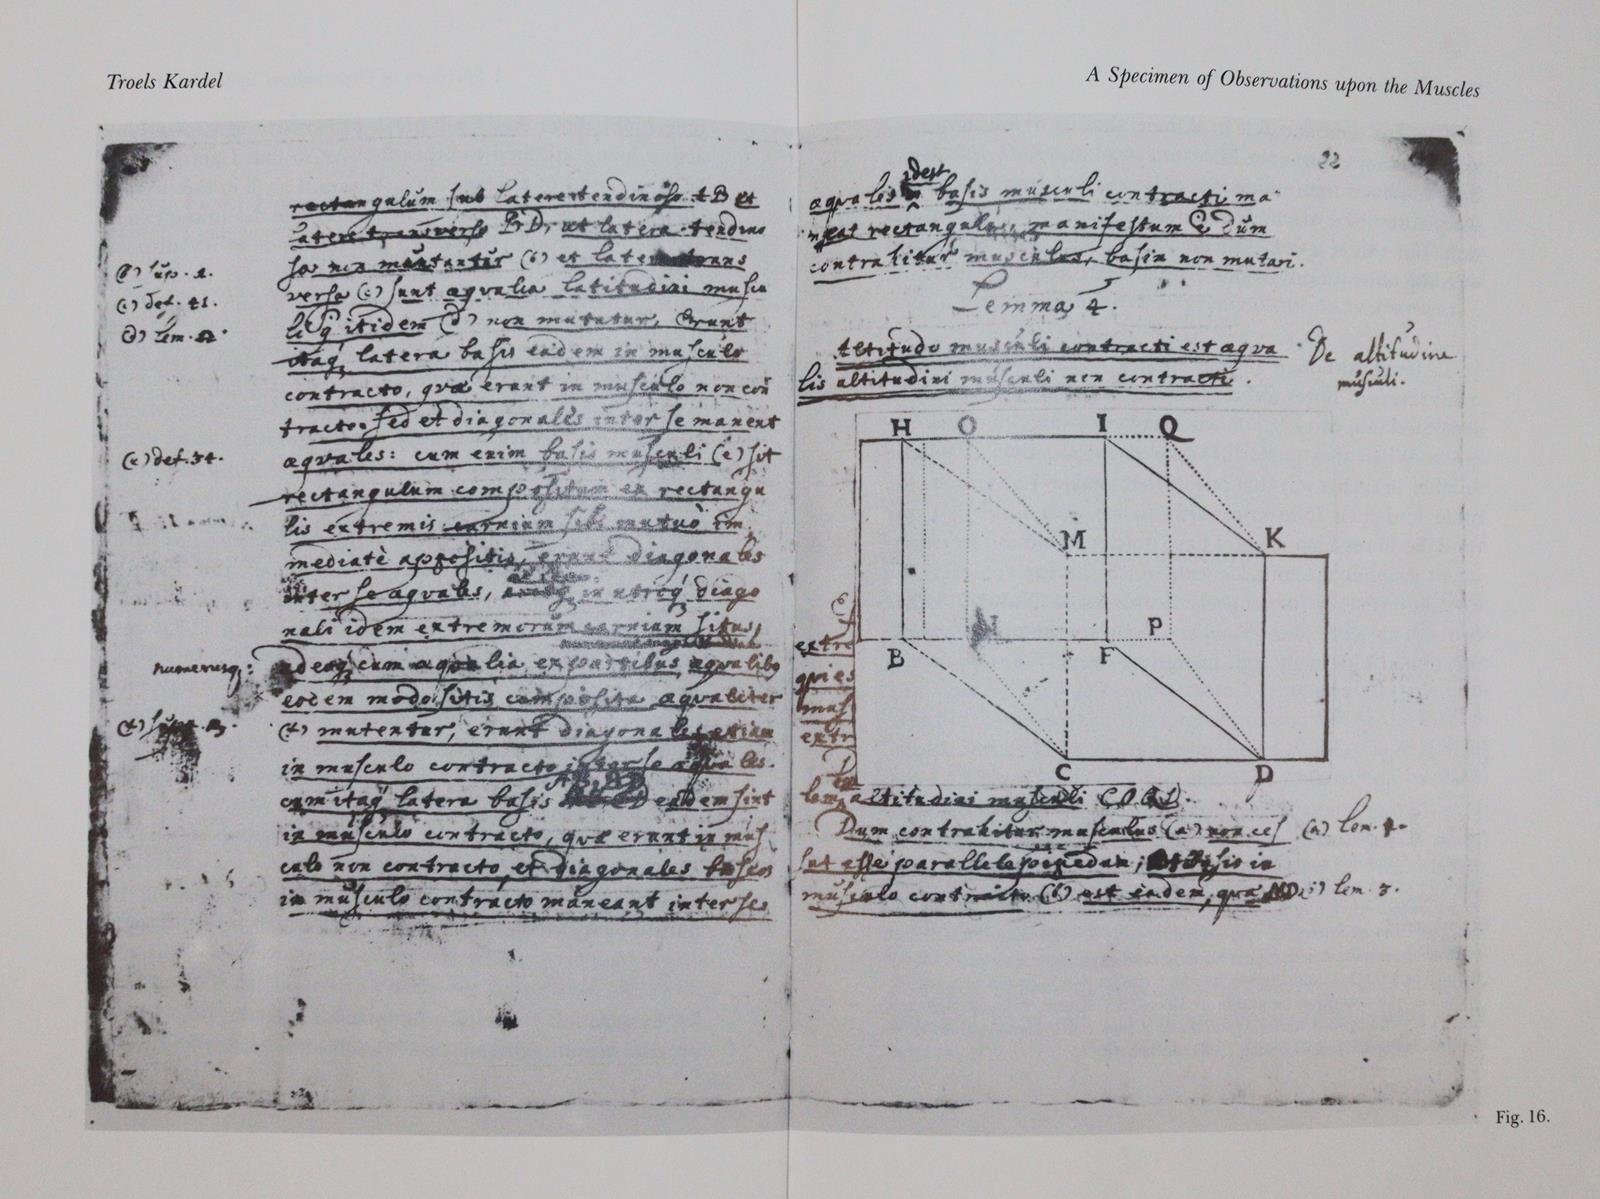 Troels Kardel
rectangulum sub latere tendinoso AB et
latere transverso BD, ut latera tendino
sa non mutantur (b) et latera trans
(b) sup. 1.
versa (c) sunt æqualia latitudini muscu
(c) def. 41.
li itidem (d) non mutatur. Erunt
(d) lem. 2.
itaq; latera basis eadem in musculo
contracto, quæ erant in musculo non con
tracto. sed et diagonales inter se manent
æquales: cum enim basis musculi (e) sit
(e) def. 34.
rectangulum compositum ex rectangu
lis extremis carnium sibi mutuò im
mediatè appositis, erunt diagonales
inter se æquales, in utraq; diago
nali idem extremorum carnium situs,
numerusq;:
adeoq; cum æqualia ex partibus æqualibus
eodem modo sitis composita æqualiter
(f) mutentur, erunt diagonales etiam
in musculo contracto inter se æquales.
cum itaq; latera basis eadem sint
in musculo contracto, quæ erant in mus
culo non contracto, et diagonales baseos
in musculo contracto maneant inter se
A Specimen of Observations upon the Muscles
22
idest
æquales basis musculi contracti ma
neat rectangulum, manifestum e dum
contrahitur musculus, basin non mutari.
Lemma 4.
Altitudo musculi contracti est æqua
lis altitudini musculi non contracti.
De altitudine
musculi.
H O I Q
M K
B F P
C D
extre
qui es
mus
extr
altitudini musculi
Dum contrahitur musculus (a) non ces
(a) lem. 1.
sat esse parallelepipedum; basis in
musculo contracto (b) est eadem, quæ
lem. 3.
Fig. 16.